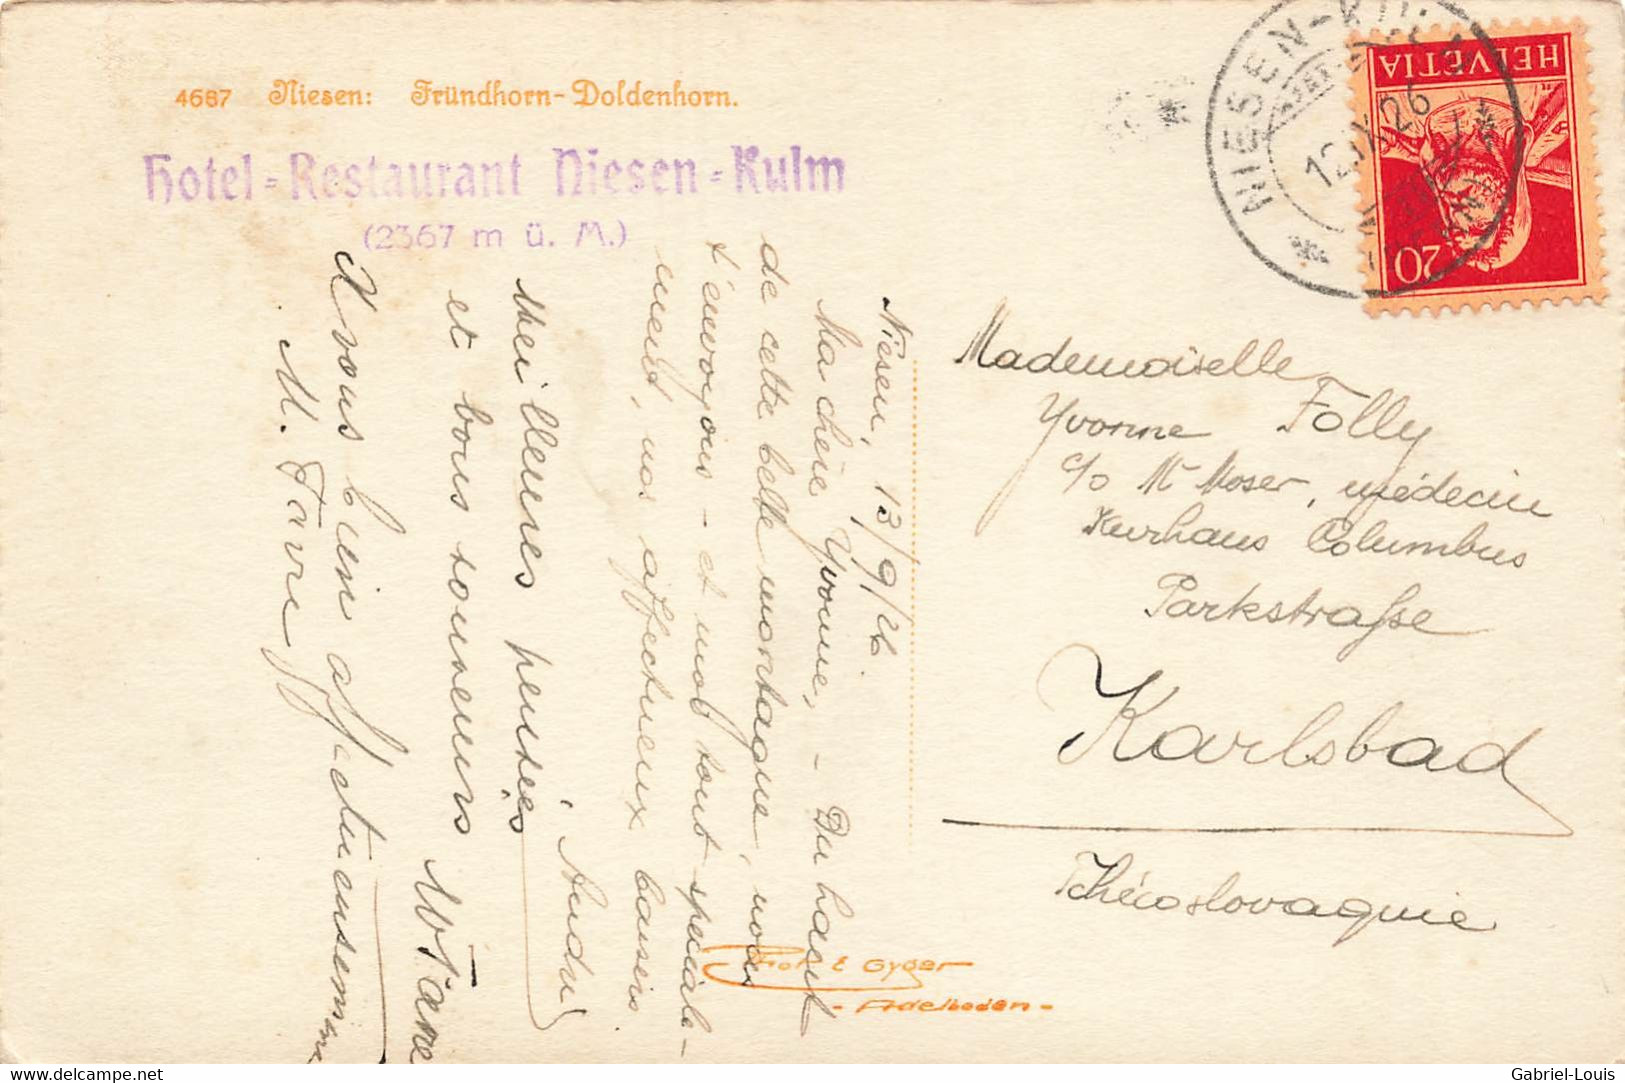 4687 Niesen: Fründhorn-Doldenhorn.
Hotel-Restaurant Niesen-Kulm
(2367 m ü. M.)
NIESEN-KULM
12.IX.26
HELVETIA
20
Niesen, 13/9/26.
Ma chère Yvonne, - Du haut
de cette belle montagne, nous
t'envoyons - et moi tout spéciale-
ment, nos affectueux baisers
André
Meilleures pensées
et bons souvenirs
A vous bien affectueusement
M. Favre
Mademoiselle
Yvonne Folly
c/o Mr Moser, médecin
Kurhaus Columbus
Parkstraße
Karlsbad
Tchécoslovaquie
Phot E Gyger
- Adelboden -
delcampe.net
Gabriel-Louis